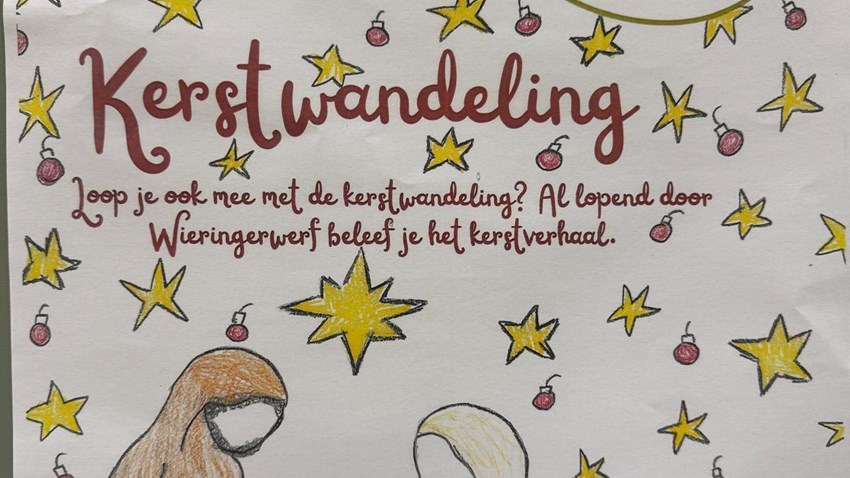 Kerstwandeling
Loop je ook mee met de kerstwandeling? Al lopend door
Wieringerwerf beleef je het kerstverhaal.